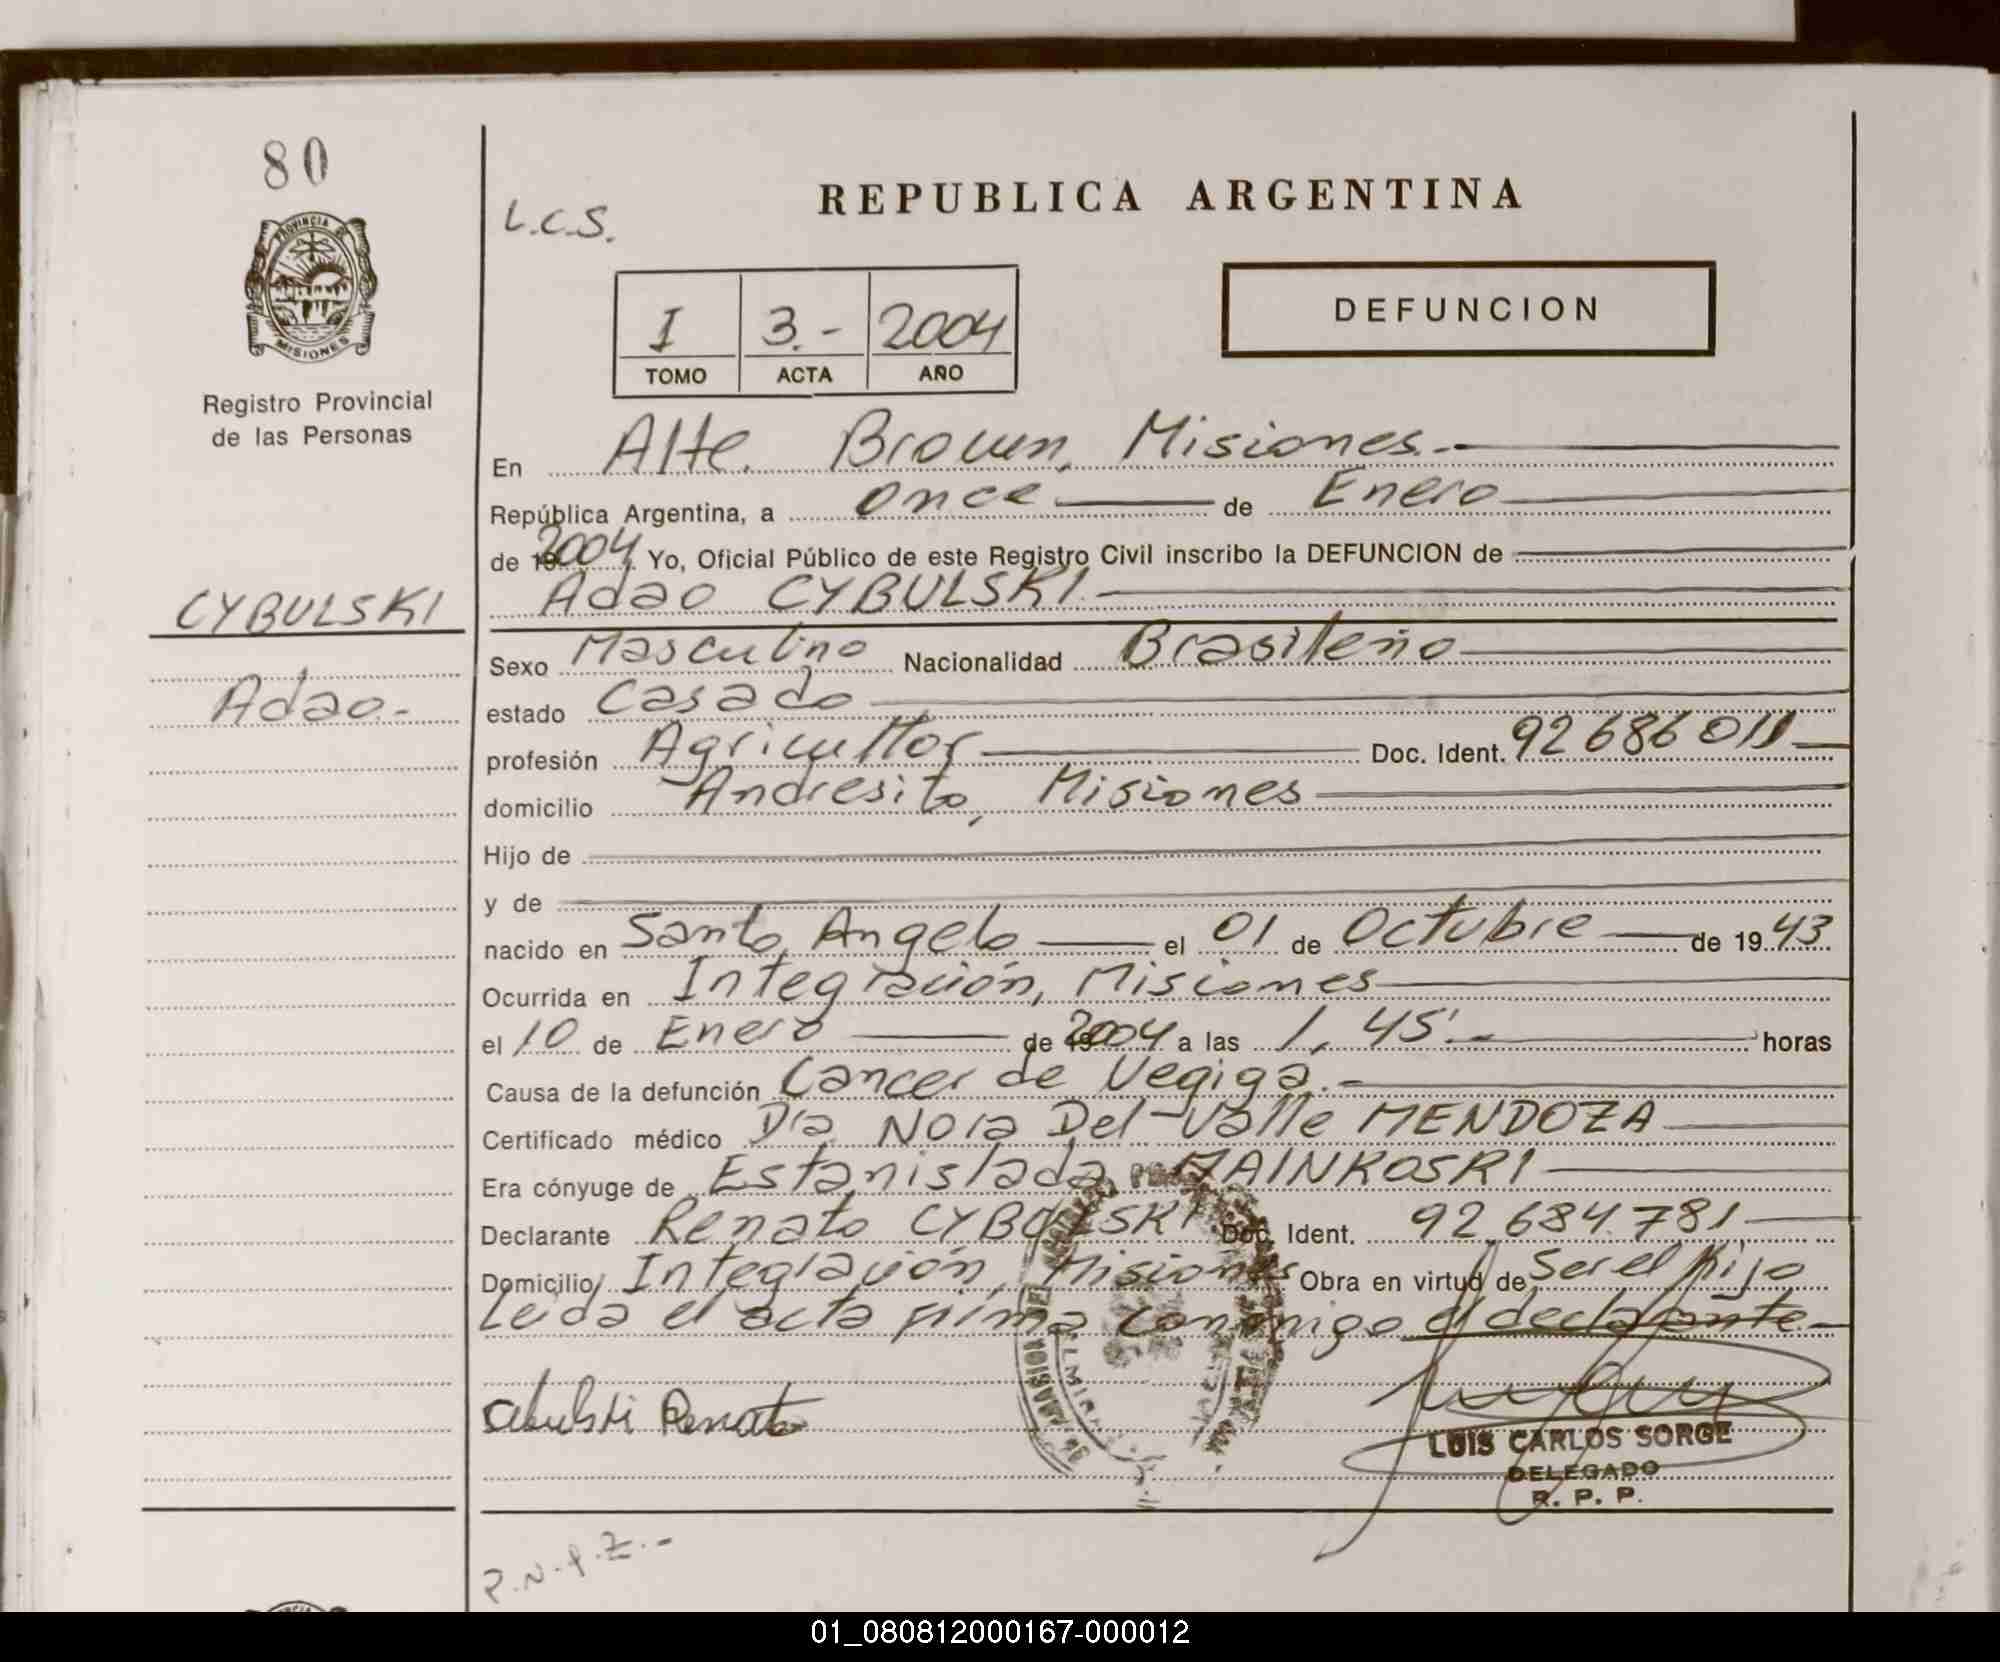 80
PROVINCIA DE
MISIONES
Registro Provincial
de las Personas
CYBULSKI
Adao.-
L.C.S.
REPUBLICA ARGENTINA
I 3.- 2004
TOMO ACTA AÑO
DEFUNCION
En Alte. Brown, Misiones.-
República Argentina, a once de Enero
de 2004 Yo, Oficial Público de este Registro Civil inscribo la DEFUNCION de
Adao CYBULSKI.-
Sexo Masculino Nacionalidad Brasileño
estado Casado
profesión Agricultor Doc. Ident. 92686011
domicilio Andresito, Misiones
Hijo de
y de
nacido en Santo Angelo el 01 de Octubre de 1943
Ocurrida en Integración, Misiones
el 10 de Enero de 2004 a las 1,45'.- horas
Causa de la defunción Cancer de Vegiga.-
Certificado médico Dra Nora Del Valle MENDOZA
Era cónyuge de Estanislada MAINKOSKI
Declarante Renato CYBULSKI Doc. Ident. 92.684.781
Domicilio Integración, Misiones Obra en virtud de Ser el hijo
Leida el acta firma conmigo el declarante-
Renato
LUIS CARLOS SORGE
DELEGADO
R. P. P.
01_080812000167-000012